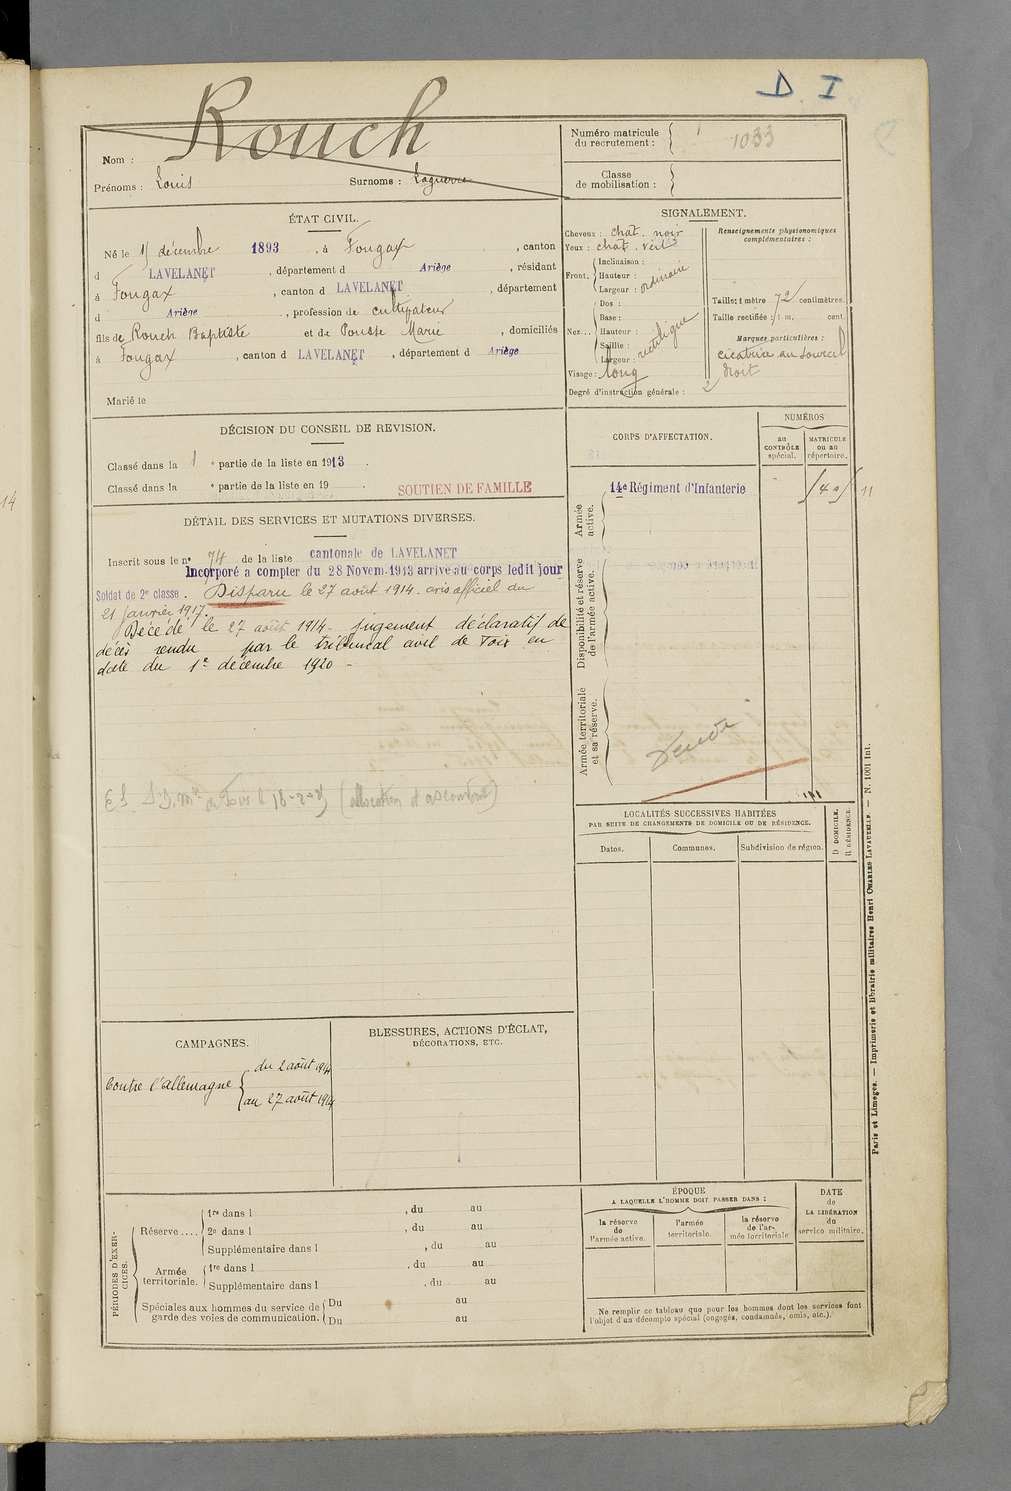 D. I
Rouch
Nom :
Prénoms : Louis
Surnoms : Laguerre
Numéro matricule
du recrutement :
1033
Classe
de mobilisation :
ÉTAT CIVIL.
Né le 15 décembre 1893, à Fougax, canton
d LAVELANET, département d Ariège, résidant
à Fougax, canton d LAVELANET, département
d Ariège, profession de cultivateur
fils de Rouch Baptiste et de Pousse Marie, domiciliés
à Fougax, canton d LAVELANET, département d Ariège
Marié le
SIGNALEMENT.
Cheveux : chat. noir
Yeux : chat. vert
Front.
Inclinaison :
Hauteur :
Largeur :
ordinaire
Nez...
Dos :
Base :
Hauteur :
Saillie :
Largeur :
rectiligne
Visage : long
Degré d'instruction générale : 2
Renseignements physionomiques
complémentaires :
Taille : 1 mètre 72 centimètres.
Taille rectifiée : 1 m. cent.
Marques particulières :
cicatrice au sourcil
droit
DÉCISION DU CONSEIL DE REVISION.
Classé dans la 1 e partie de la liste en 1913.
Classé dans la e partie de la liste en 19 .
SOUTIEN DE FAMILLE
DÉTAIL DES SERVICES ET MUTATIONS DIVERSES.
Inscrit sous le n° 74 de la liste cantonale de LAVELANET
Incorporé a compter du 28 Novem. 1913 arrivé au corps ledit jour
Soldat de 2e classe. Disparu le 27 août 1914. avis officiel du
21 janvier 1917.
Décédé le 27 août 1914. jugement déclaratif de
décès rendu par le tribunal civil de Foix en
date du 1er décembre 1920 -
(allocation d'ascendant)
CORPS D'AFFECTATION.
NUMÉROS
au
CONTRÔLE
spécial.
MATRICULE
ou au
répertoire.
Armée
active.
14e Régiment d'Infanterie
11
Disponibilité et réserve
de l'armée active.
Armée territoriale
et sa réserve.
LOCALITÉS SUCCESSIVES HABITÉES
PAR SUITE DE CHANGEMENTS DE DOMICILE OU DE RÉSIDENCE.
Dates.
Communes.
Subdivision de région.
D. DOMICILE.
R. RÉSIDENCE.
CAMPAGNES.
Contre l'Allemagne
du 2 août 1914
au 27 août 1914
BLESSURES, ACTIONS D'ÉCLAT,
DÉCORATIONS, ETC.
PÉRIODES D'EXER-
CICES.
Réserve....
1re dans l , du au
2e dans l , du au
Supplémentaire dans l , du au
Armée
territoriale.
1re dans l , du au
Supplémentaire dans l , du au
Spéciales aux hommes du service de
garde des voies de communication.
Du au
Du au
ÉPOQUE
A LAQUELLE L'HOMME DOIT PASSER DANS :
la réserve
de
l'armée active.
l'armée
territoriale.
la réserve
de l'ar-
mée territoriale
DATE
de
LA LIBÉRATION
du
service militaire.
Ne remplir ce tableau que pour les hommes dont les services font
l'objet d'un décompte spécial (engagés, condamnés, omis, etc.).
Paris et Limoges. — Imprimerie et librairie militaires Henri CHARLES LAVAUZELLE. — N. 1001 int.
14